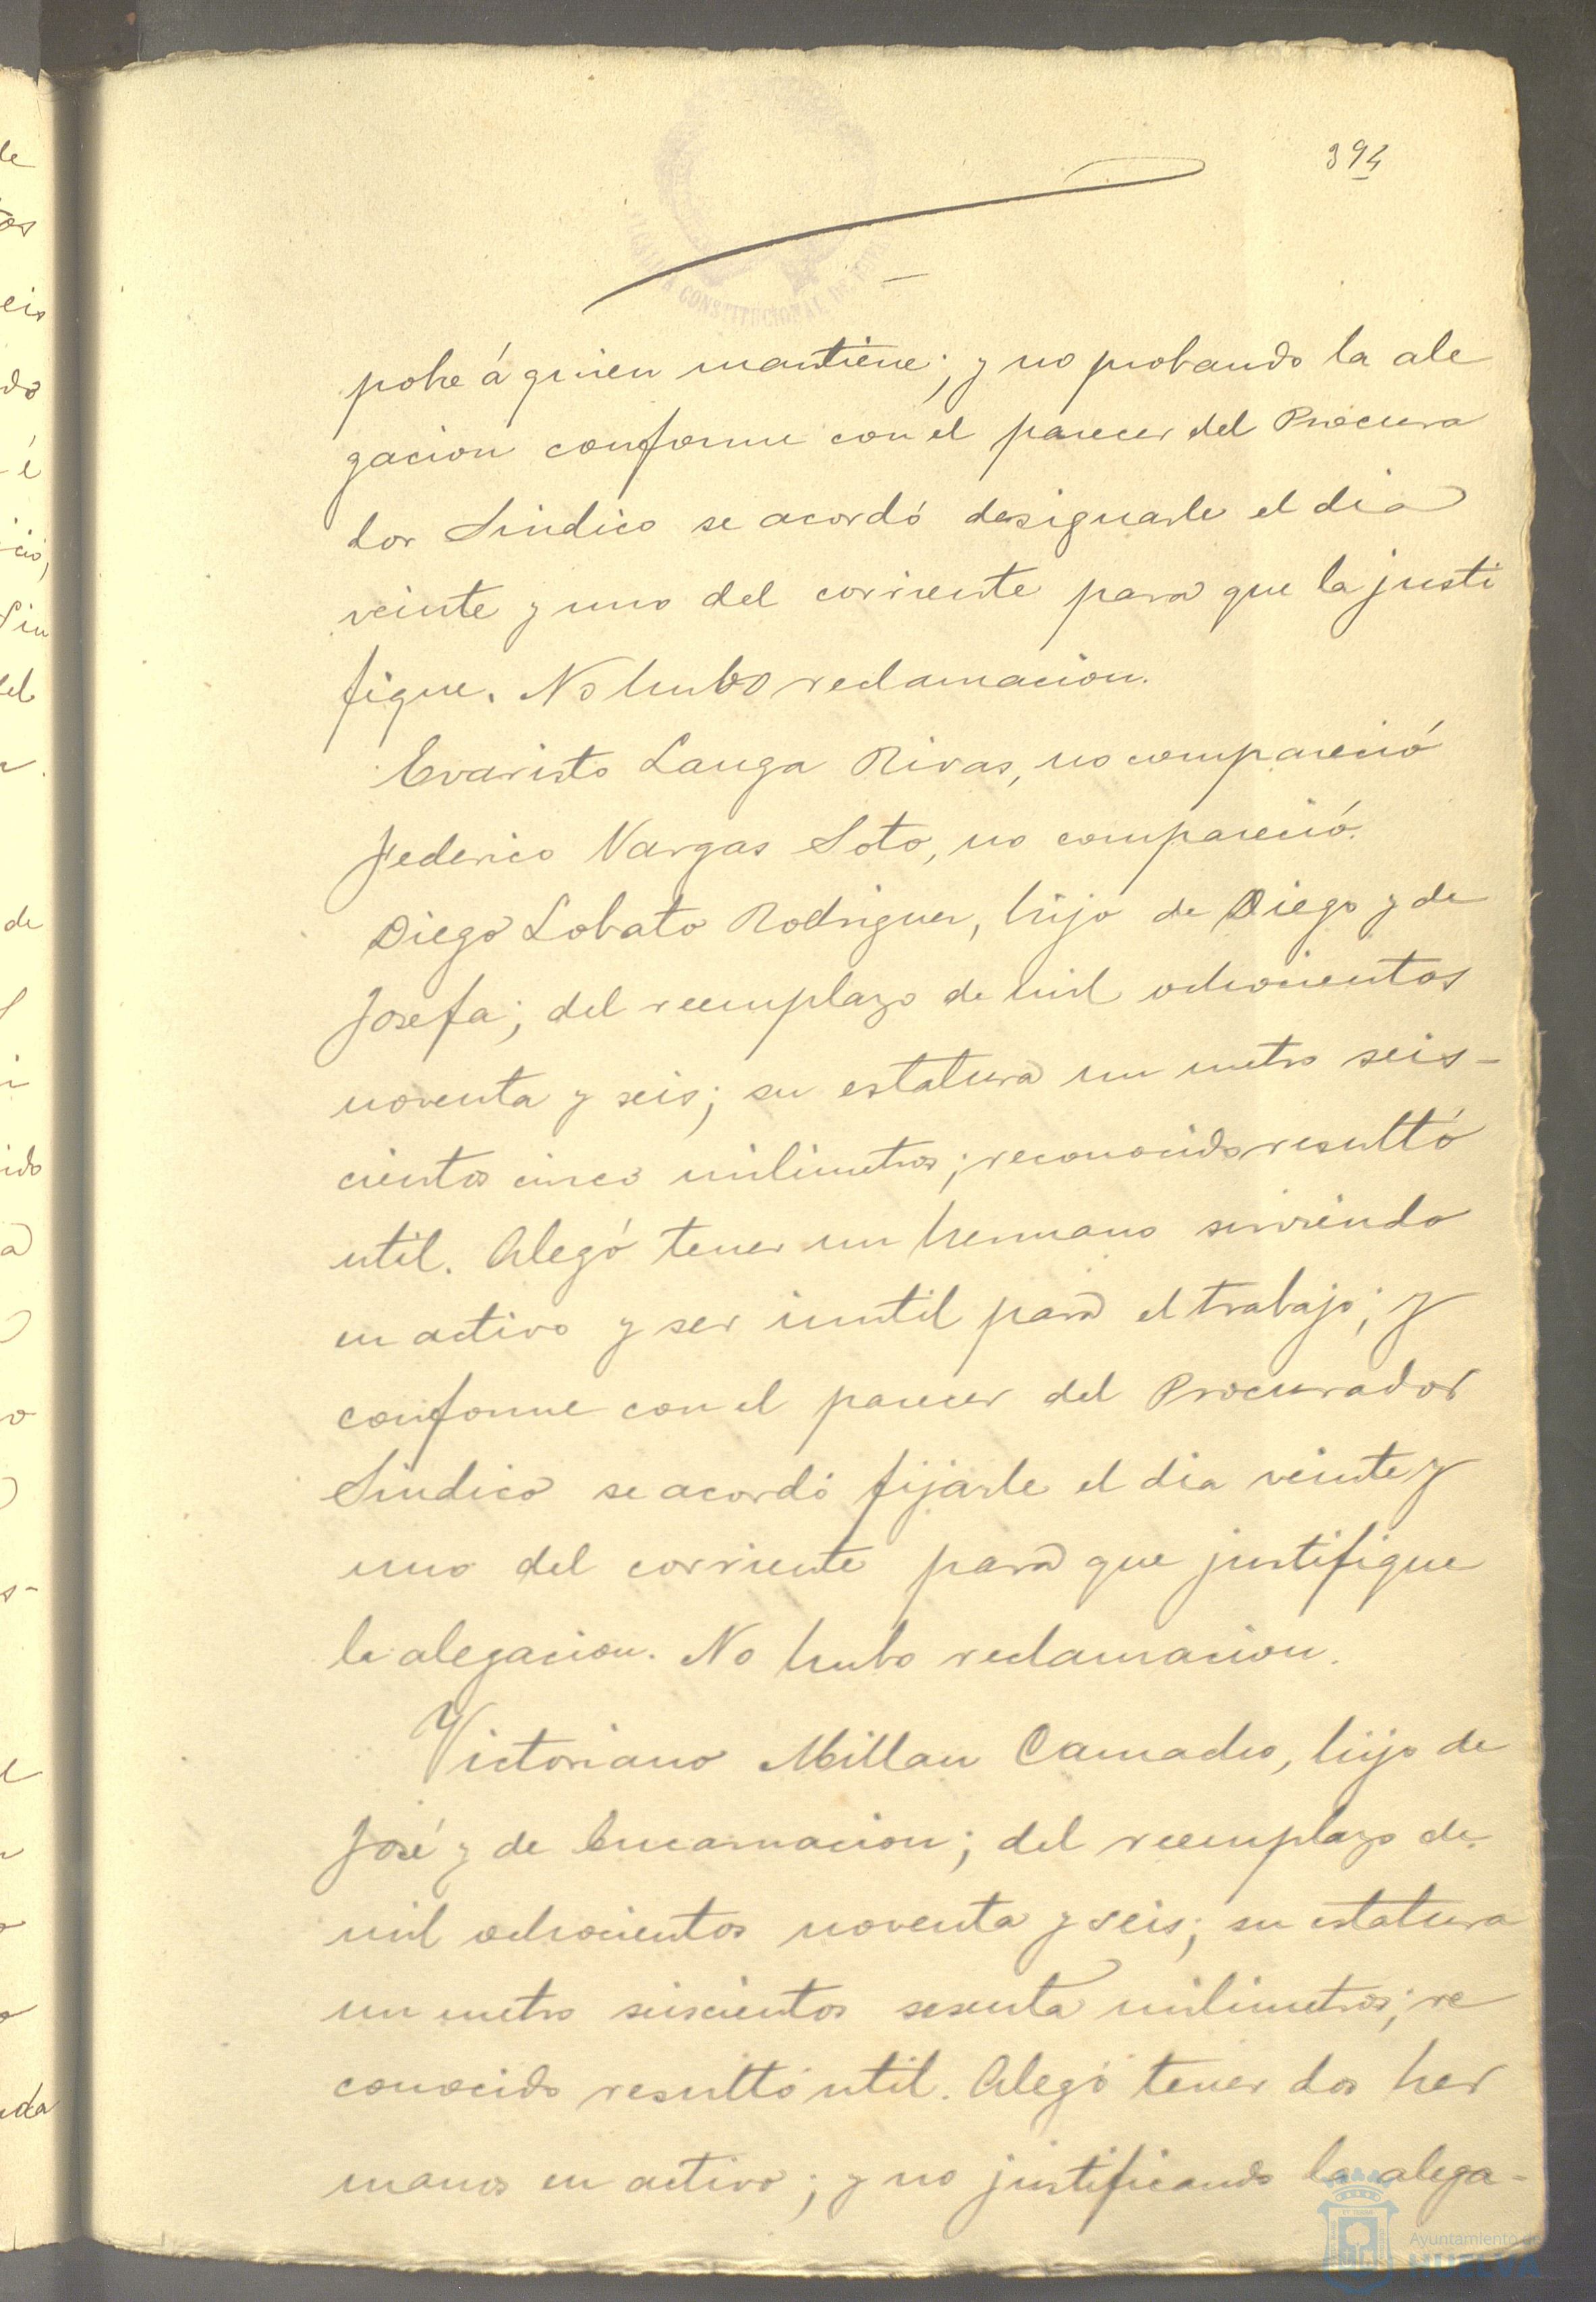 394
CONSTITUCIONAL DE
pobre á quien mantiene; y no probando la ale
gacion conforme con el parecer del Procura
dor Sindico se acordó designarle el dia
veinte y uno del corriente para que la justi
fique. No hubo reclamacion.
Evaristo Langa Rivas, no compareció
Federico Vargas Soto, no compareció.
Diego Lobato Rodriguez, hijo de Diego y de
Josefa; del reemplazo de mil ochocientos
noventa y seis; su estatura un metro seis-
cientos cinco milimetros; reconocido resultó
util. Alegó tener un hermano sirviendo
en activo y ser inutil para el trabajo; y
conforme con el parecer del Procurador
Sindico se acordó fijarle el dia veinte y
uno del corriente para que justifique
la alegacion. No hubo reclamacion.
Victoriano Millan Camacho, hijo de
José y de Encarnacion; del reemplazo de
mil ochocientos noventa y seis; su estatura
un metro seiscientos sesenta milimetros; re
conocido resultó util. Alegó tener dos her
manos en activo; y no justificando la alega-
Ayuntamiento de
HUELVA